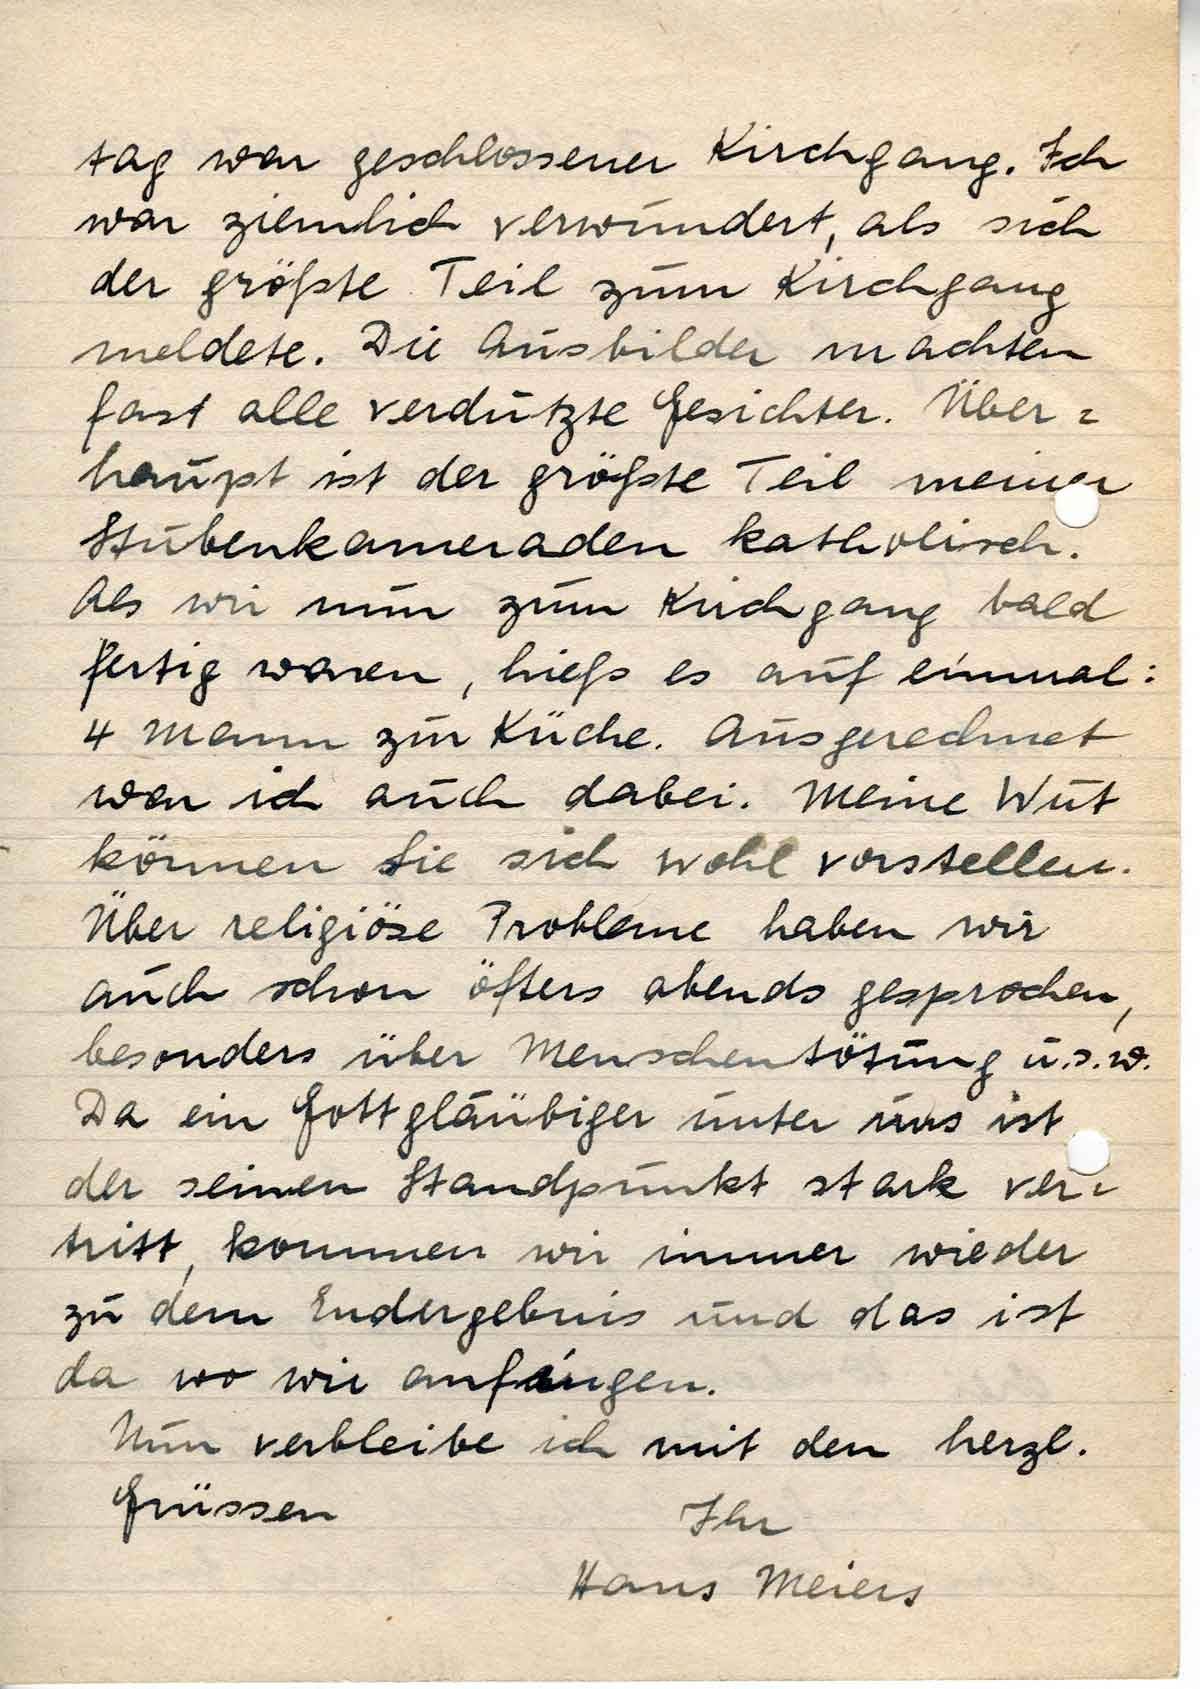 tag war geschlossener Kirchgang. Ich
war ziemlich verwundert, als sich
der größte Teil zum Kirchgang
meldete. Die Ausbilder machten
fast alle verdutzte Gesichter. Über=
haupt ist der größte Teil meiner
Stubenkameraden katholisch.
Als wir nun zum Kirchgang bald
fertig waren, hieß es auf einmal:
4 Mann zur Küche. Ausgerechnet
war ich auch dabei. Meine Wut
können Sie sich wohl vorstellen.
Über religiöse Probleme haben wir
auch schon öfters abends gesprochen,
besonders über Menschentötung u.s.w.
Da ein Gottgläubiger unter uns ist
der seinen Standpunkt stark ver=
tritt, kommen wir immer wieder
zu dem Endergebnis und das ist
da wo wir anfingen.
Nun verbleibe ich mit den herzl.
Grüssen Ihr
Hans Meiers